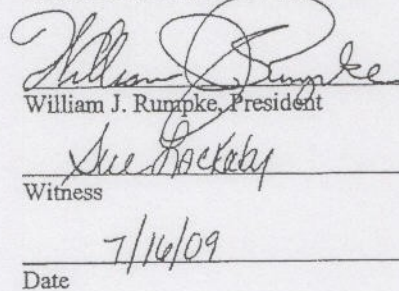 William J. Rumpke
William J. Rumpke, President
Sue Lackaby
Witness
7/16/09
Date